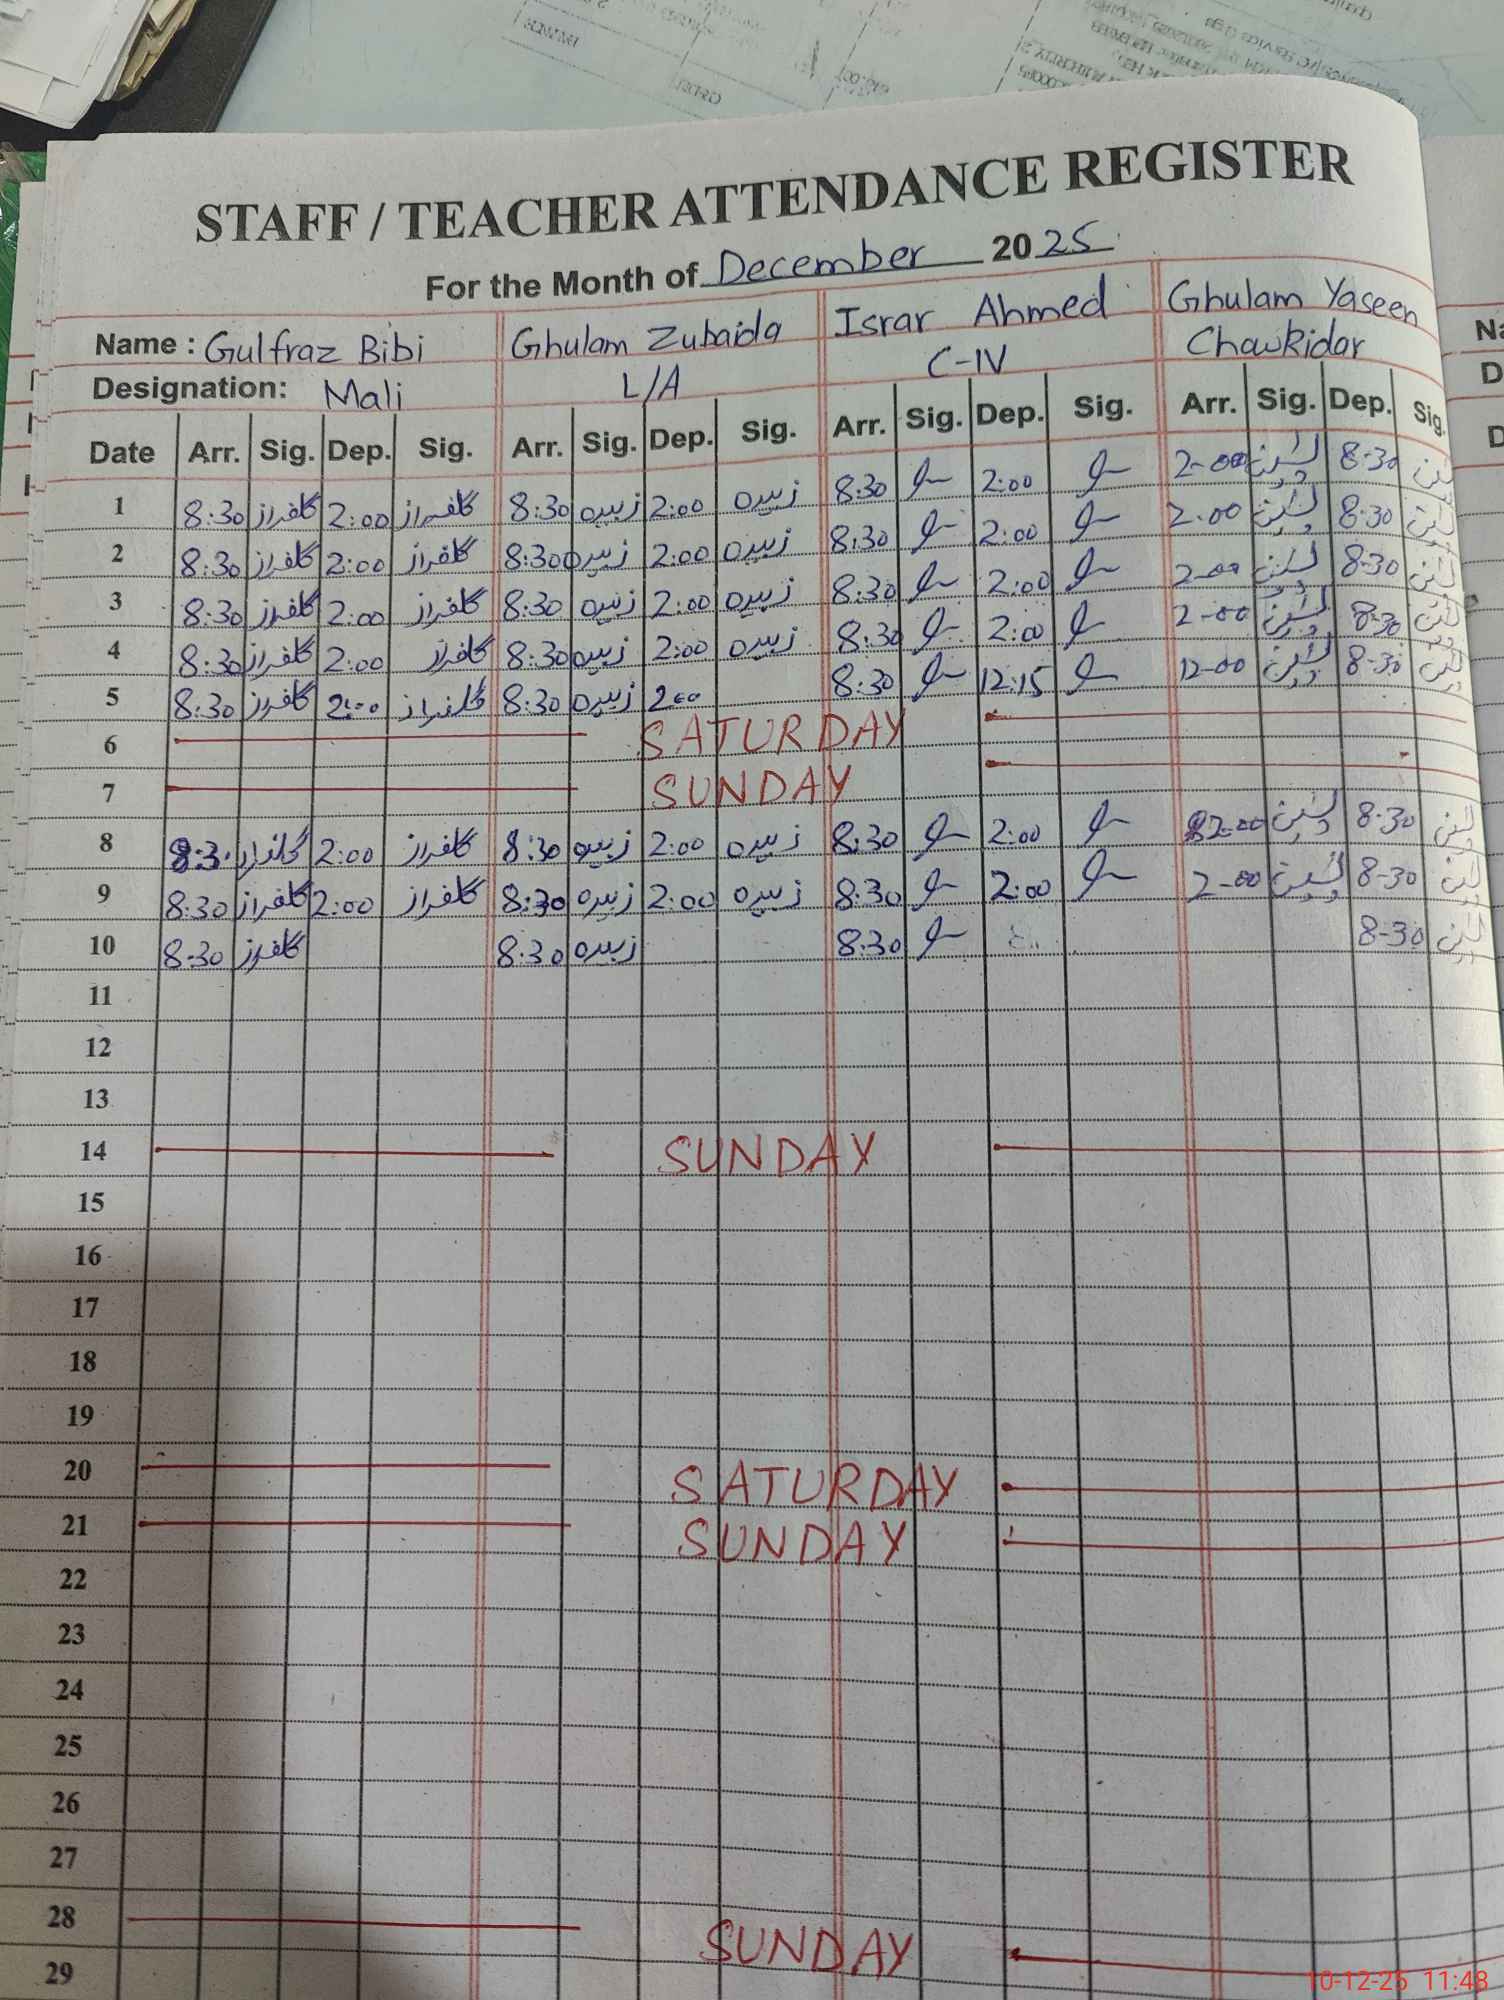 STAFF / TEACHER ATTENDANCE REGISTER
For the Month of December 2025
Name : Gulfraz Bibi Ghulam Zubaida Israr Ahmed Ghulam Yaseen
Designation: Mali L/A C-IV Chowkidar
Date Arr. Sig. Dep. Sig. Arr. Sig. Dep. Sig. Arr. Sig. Dep. Sig. Arr. Sig. Dep. Sig.
1 8:30 گلفراز 2:00 گلفراز 8:30 زبیدہ 2:00 زبیدہ 8:30 2:00 2-00 یٰسین 8-30
2 8:30 گلفراز 2:00 گلفراز 8:30 زبیدہ 2:00 زبیدہ 8:30 2:00 2.00 یٰسین 8-30
3 8:30 گلفراز 2:00 گلفراز 8:30 زبیدہ 2:00 زبیدہ 8:30 2:00 2-00 یٰسین 8-30
4 8:30 گلفراز 2:00 گلفراز 8:30 زبیدہ 2:00 زبیدہ 8:30 2:00 2-00 یٰسین 8-30
5 8:30 گلفراز 2:00 گلفراز 8:30 زبیدہ 2:00 8:30 12:15 12-00 یٰسین 8-30
6 SATURDAY
7 SUNDAY
8 8:30 گلفراز 2:00 گلفراز 8:30 زبیدہ 2:00 زبیدہ 8:30 2:00 2-00 یٰسین 8-30
9 8:30 گلفراز 2:00 گلفراز 8:30 زبیدہ 2:00 زبیدہ 8:30 2:00 2-00 یٰسین 8-30
10 8-30 گلفراز 8:30 زبیدہ 8:30 8-30
11
12
13
14 SUNDAY
15
16
17
18
19
20 SATURDAY
21 SUNDAY
22
23
24
25
26
27
28 SUNDAY
29
10-12-25 11:48